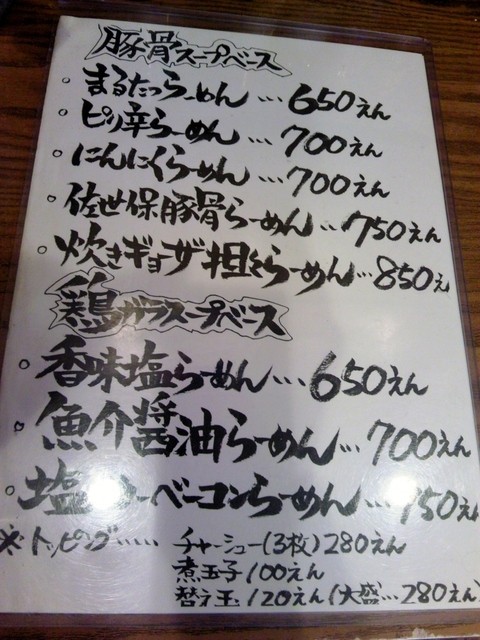 豚骨スープベース
。まるたっらーめん…650えん
。ピリ辛らーめん…700えん
。にんにくらーめん…700えん
。佐世保豚骨らーめん…750えん
。炊きギョーザ担々らーめん…850え
鶏ガラスープベース
。香味塩らーめん…650えん
。魚介醤油らーめん…700えん
。塩 ーベーコンらーめん… 50えん
※トッピング…… チャーシュー(3枚)280えん
煮玉子100えん
替え玉120えん(大盛…280えん)